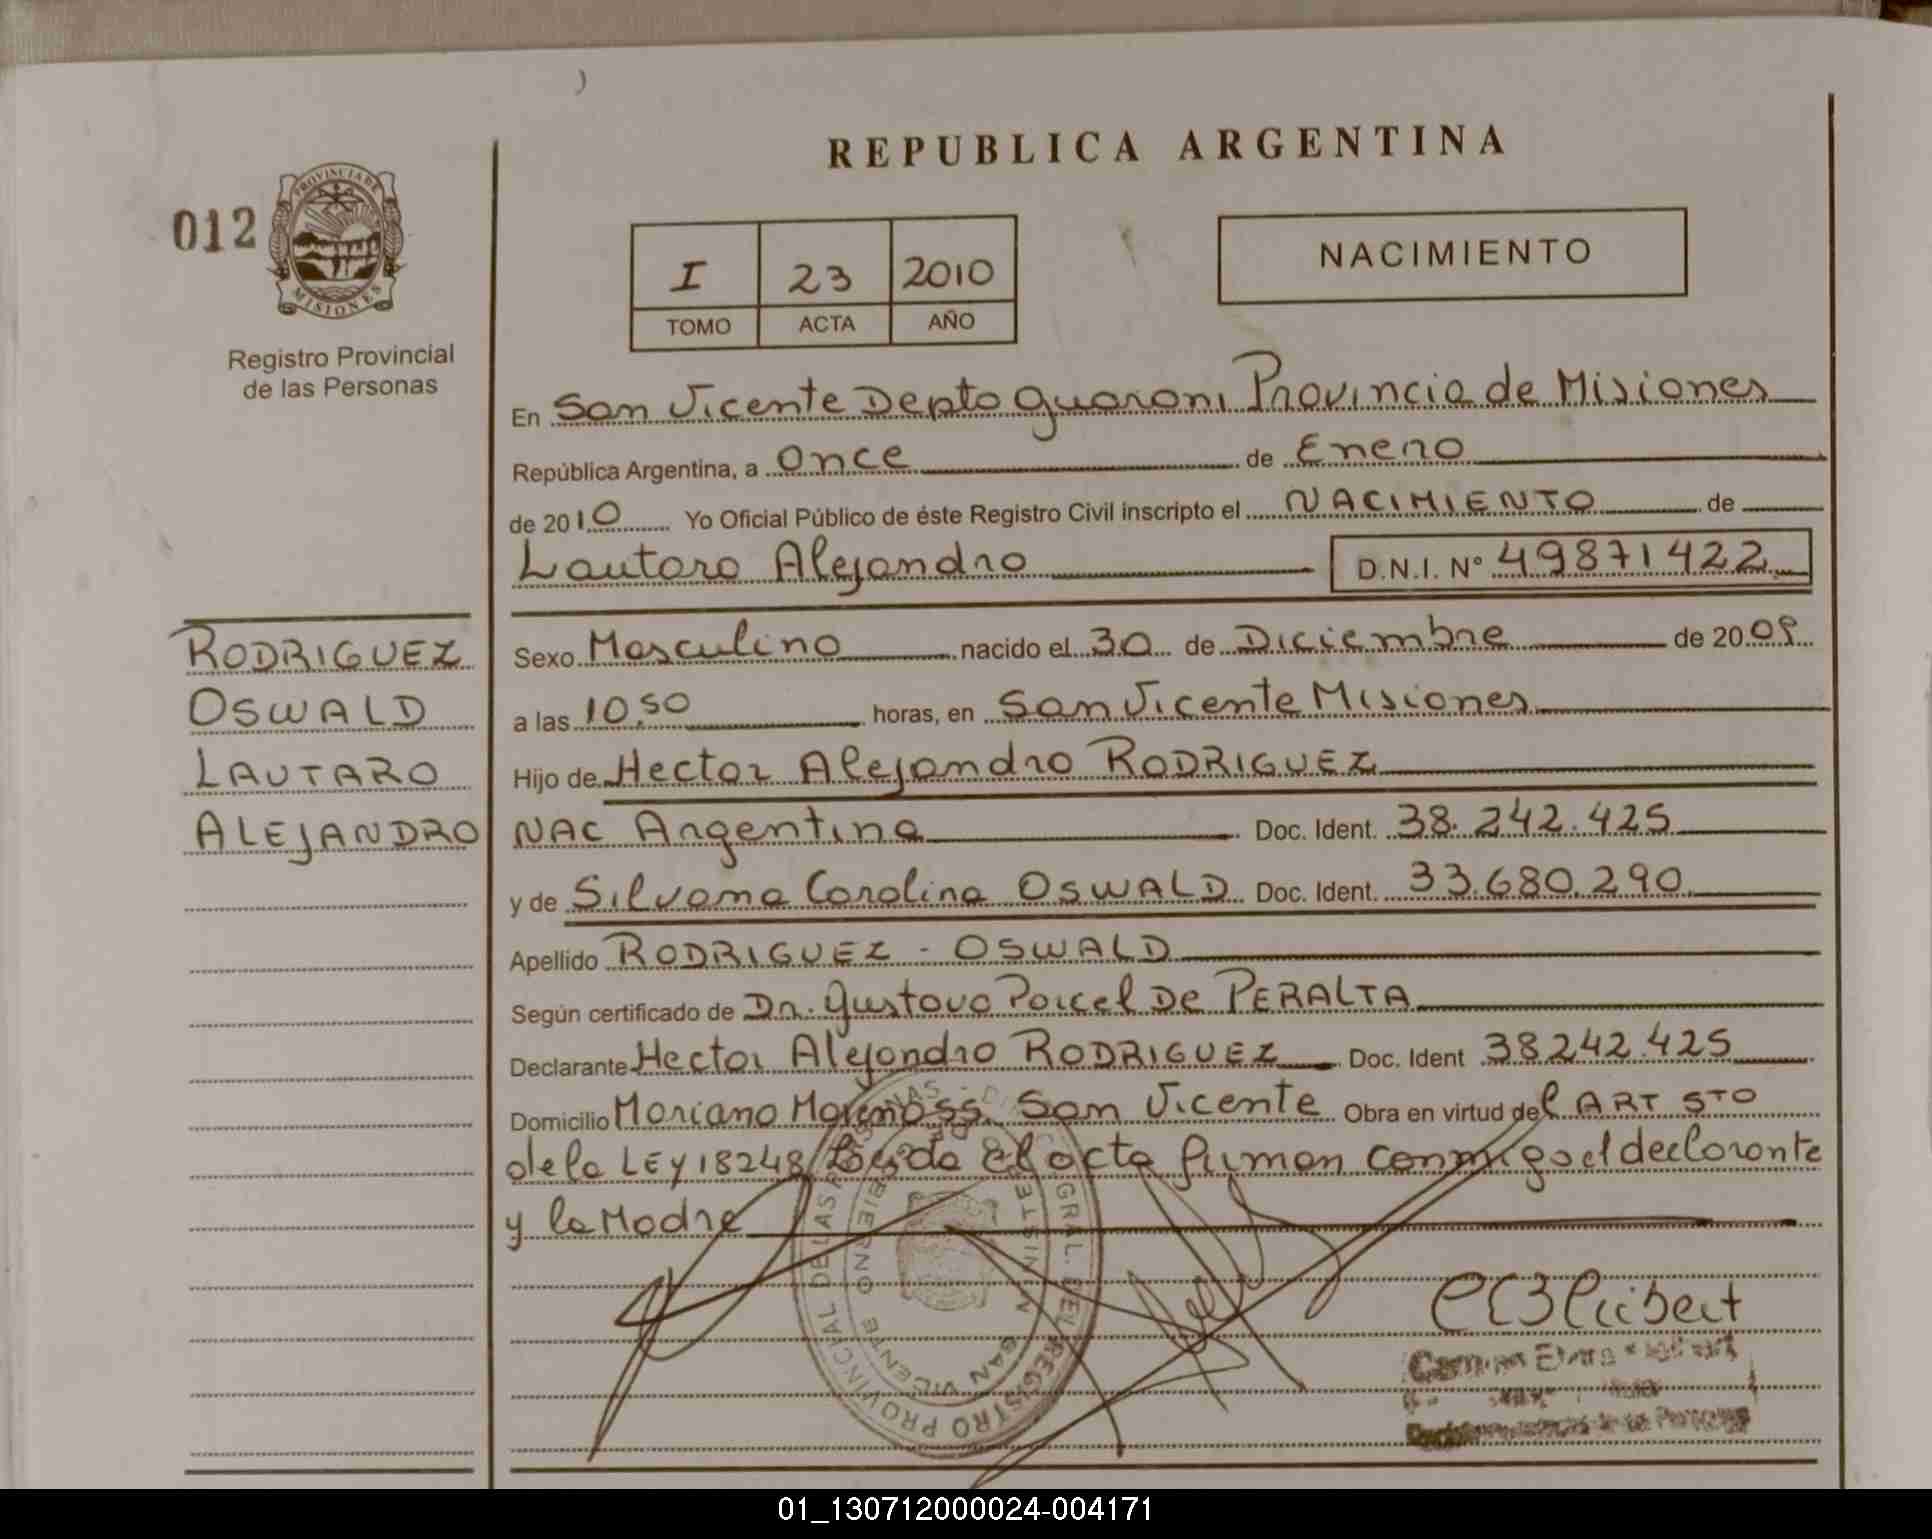 REPUBLICA ARGENTINA
012
PROVINCIA DE
MISIONES
Registro Provincial
de las Personas
I 23 2010
TOMO ACTA AÑO
NACIMIENTO
En San Vicente Depto Guarani Provincia de Misiones
República Argentina, a Once de Enero
de 2010 Yo Oficial Público de éste Registro Civil inscripto el NACIMIENTO de
Lautaro Alejandro D.N.I. Nº 49871422
RODRIGUEZ
OSWALD
LAUTARO
ALEJANDRO
Sexo Masculino nacido el 30 de Diciembre de 2009
a las 10,50 horas, en San Vicente Misiones
Hijo de Hector Alejandro RODRIGUEZ
NAC Argentina Doc. Ident. 38.242.425
y de Silvana Carolina OSWALD Doc. Ident. 33.680.290
Apellido RODRIGUEZ - OSWALD
Según certificado de Dr. Gustavo Porcel De PERALTA
Declarante Hector Alejandro RODRIGUEZ Doc. Ident 38242.425
Domicilio Mariano Moreno SS. San Vicente Obra en virtud del ART 5TO
de la LEY 18248 Leyda El acta firman conmigo el declarante
y la Madre
REGISTRO PROVINCIAL DE LAS PERSONAS
SAN VICENTE
01_130712000024-004171